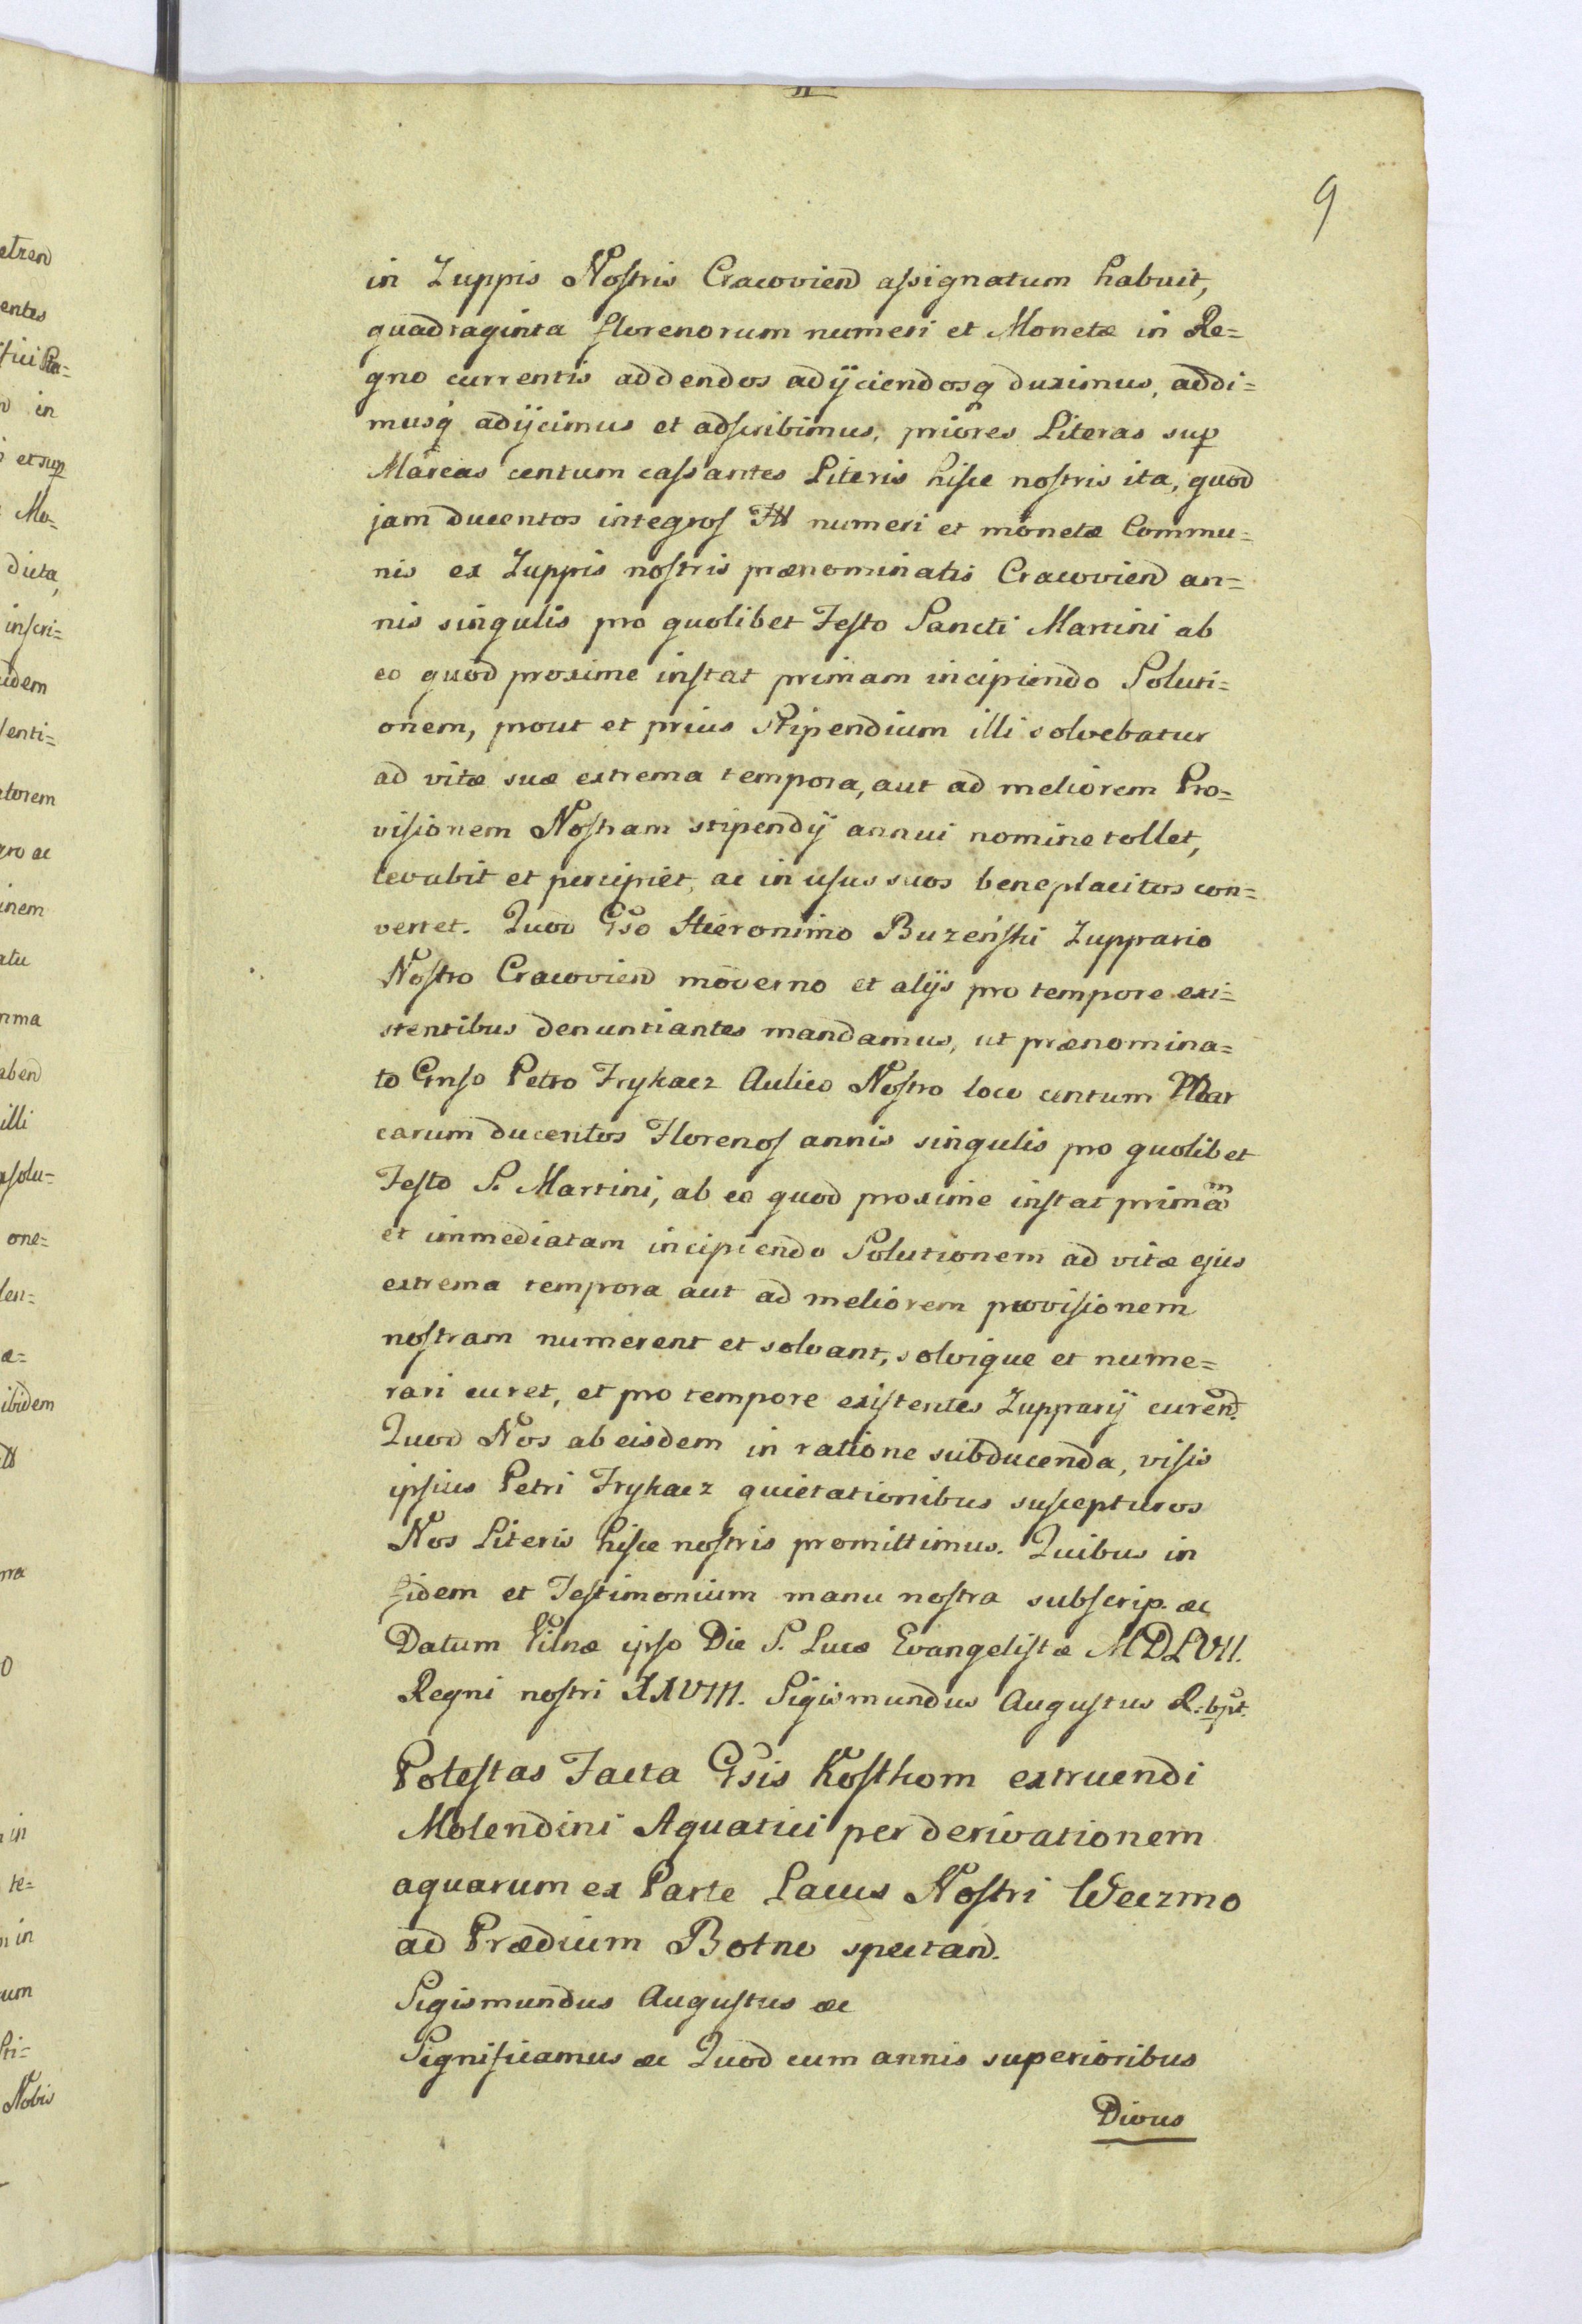 9
in Zuppis Nostris Cracovien assignatum habuit,
quadraginta florenorum numeri et Monetæ in Re=
gno currentis addendos adijciendosq duximus, addi=
musq adijcimus et adscribimus, priores Literas sup
Marcas centum cassantes Literis hisce nostris ita, quod
jam ducentos integros Fll numeri et monetæ Commu=
nis ex Zuppis nostris prænominatis Cracovien an=
nis singulis pro quolibet Festo Sancti Martini ab
eo quod proxime instat primam incipiendo Soluti=
onem, prout et prius Stipendium illi solvebatur
ad vitæ suæ extrema tempora, aut ad meliorem Pro=
visionem Nostram stipendij annui nomine tollet,
levabit et percipiet, ac in usus suos beneplacitos con=
vertet. Quod Gso Hieronimo Buzeński Zuppario
Nostro Cracovien moderno et alijs pro tempore exi=
stentibus denuntiantes mandamus, ut prænomina=
to Gnso Petro Frykacz Aulico Nostro loco centum Mar
carum ducentos Florenos annis singulis pro quolibet
Festo S. Martini, ab eo quod proxime instat primam
et immediatam incipiendo Solutionem ad vitæ ejus
extrema tempora aut ad meliorem provisionem
nostram numerent et solvant, solvique et nume=
rari curet, et pro tempore existentes Zupparij curend.
Quod Nos ab eisdem in ratione subducenda, visis
ipsius Petri Frykacz quietationibus suscepturos
Nos Literis hisce nostris promittimus. Quibus in
fidem et Testimonium manu nostra subscrip. &c
Datum Vilnæ ipso Die S. Lucæ Evangelistæ MDLVII.
Regni nostri XXVIII. Sigismundus Augustus R:
Potestas Facta Gsis Kosthom extruendi
Molendini Aquatici per derivationem
aquarum ex Parte Lacus Nostri Wieczmo
ad Prædium Botno spectan.
Sigismundus Augustus &c
Significamus &c Quod cum annis superioribus
Divus